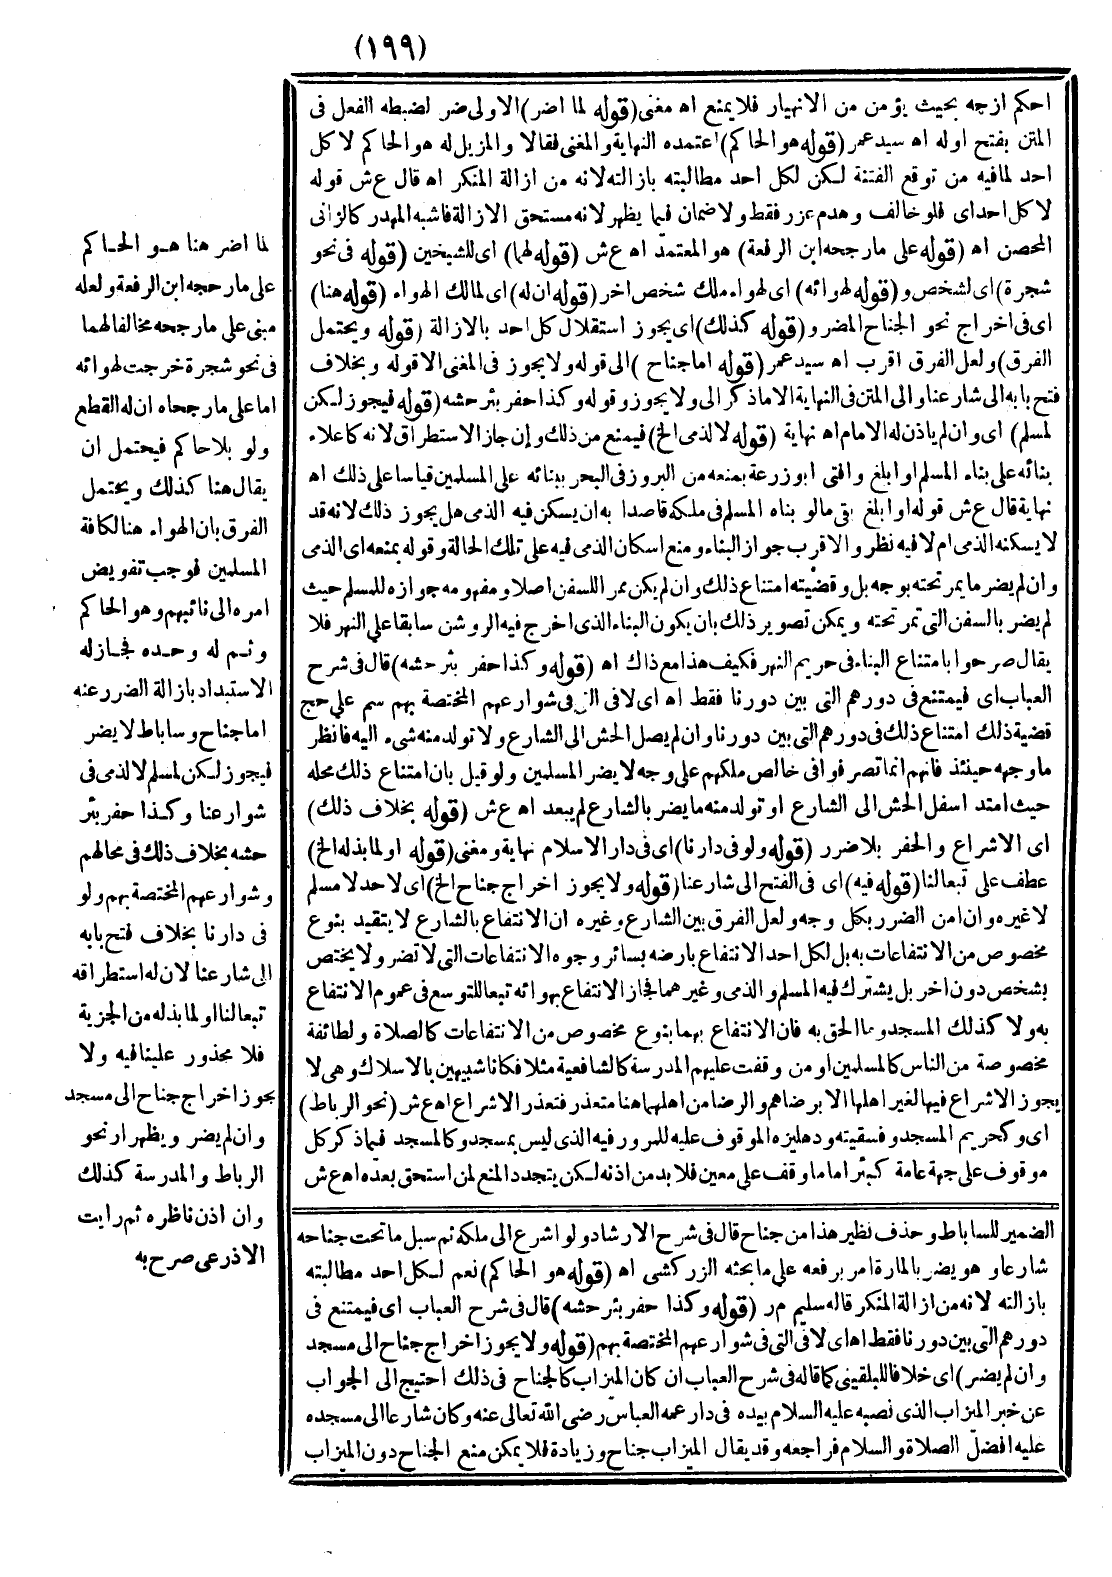 (١٩٩)
احكم ازجه بحيث يؤمن من الانهيار فلا يمنع اه مغنى (قوله لما اضر) الاولى ضر لضبطه الفعل فى
المتن بفتح اوله اه سيد عمر (قوله هو الحاكم) اعتمده النهاية والمغنى فقالا والمزيل له هو الحاكم لا كل
احد لما فيه من توقع الفتنة لكن لكل احد مطالبته بازالته لانه من ازالة المنكر اه قال ع ش قوله
لا كل احد اى فلو خالف وهدم عزر فقط ولا ضمان فيما يظهر لانه مستحق الازالة فاشبه المهدر كالزانى
المحصن اه (قوله على ما رجحه ابن الرفعة) هو المعتمد اه ع ش (قوله لهما) اى للشيخين (قوله فى نحو
شجرة) اى لشخص و (قوله لهوائه) اى لهواء ملك شخص اخر (قوله ان له) اى لمالك الهواء (قوله هنا)
اى فى اخراج نحو الجناح المضر و (قوله كذلك) اى يجوز استقلال كل احد بالازالة (قوله ويحتمل
الفرق) ولعل الفرق اقرب اه سيد عمر (قوله اما جناح) الى قوله ولا يجوز فى المغنى الا قوله وبخلاف
فتح بابه الى شارعنا والى المتن فى النهاية الا ما ذكر الى ولا يجوز وقوله وكذا حفر بئر حشه (قوله فيجوز لكن
لمسلم) اى وان لم ياذن له الامام اه نهاية (قوله لا لذمى الخ) فيمنع من ذلك وإن جاز الاستطراق لانه كاعلاء
بنائه على بناء المسلم او ابلغ وافتى ابو زرعة بمنعه من البروز فى البحر ببنائه على المسلمين قياسا على ذلك اه
نهاية قال ع ش قوله او ابلغ بقى ما لو بناه المسلم فى ملكه قاصدا به ان يسكن فيه الذمى هل يجوز ذلك لانه قد
لا يسكنه الذمى ام لا فيه نظر والاقرب جواز البناء ومنع اسكان الذمى فيه على تلك الحالة وقوله بمنعه اى الذمى
وان لم يضر ما يمر تحته بوجه بل وقضيته امتناع ذلك وان لم يكن ممر اللسفن اصلا ومفهومه جوازه للمسلم حيث
لم يضر بالسفن التى تمر تحته ويمكن تصوير ذلك بان يكون البناء الذى اخرج فيه الروشن سابقا على النهر فلا
يقال صرحوا بامتناع البناء فى حريم النهر فكيف هذا مع ذاك اه (قوله وكذا حفر بئر حشه) قال فى شرح
العباب اى فيمتنع فى دورهم التى بين دورنا فقط اه اى لا فى التى فى شوارعهم المختصة بهم سم على حج
قضية ذلك امتناع ذلك فى دورهم التى بين دورنا وان لم يصل الحش الى الشارع ولا تولد منه شىء اليه فانظر
ما وجهه حينئذ فانهم انما تصرفوا فى خالص ملكهم على وجه لا يضر المسلمين ولو قيل بان امتناع ذلك محله
حيث امتد اسفل الحش الى الشارع او تولد منه ما يضر بالشارع لم يبعد اه ع ش (قوله بخلاف ذلك)
اى الاشراع والحفر بلا ضرر (قوله ولو فى دارنا) اى فى دار الاسلام نهاية ومغنى (قوله او لما بذله الخ)
عطف على تبعا لنا (قوله فيه) اى فى الفتح الى شارعنا (قوله ولا يجوز اخراج جناح الخ) اى لاحد لا مسلم
لا غيره وان امن الضرر بكل وجه ولعل الفرق بين الشارع وغيره ان الانتفاع بالشارع لا يتقيد بنوع
مخصوص من الانتفاعات به بل لكل احد الانتفاع بارضه بسائر وجوه الانتفاعات التى لا تضر ولا يختص
بشخص دون اخر بل يشترك فيه المسلم والذمى وغيرهما فجاز الانتفاع بهوائه تبعا للتوسع فى عموم الانتفاع
به ولا كذلك المسجد وما الحق به فان الانتفاع بهما بنوع مخصوص من الانتفاعات كالصلاة ولطائفة
مخصوصة من الناس كالمسلمين او من وقفت عليهم المدرسة كالشافعية مثلا فكانا شبيهين بالاملاك وهى لا
يجوز الاشراع فيها لغير اهلها الا برضاهم والرضا من اهلهما هنا متعذر فتعذر الاشراع اه ع ش (نحو الرباط)
اى وكحريم المسجد وفسقيته ودهليزه الموقوف عليه للمرور فيه الذى ليس بمسجد وكالمسجد فيما ذكر كل
موقوف على جهة عامة كبئر اما ما وقف على معين فلا بد من اذنه لكن يتجدد المنع لمن استحق بعده اه ع ش
لما اضر هنا هو الحاكم
على ما رجحه ابن الرفعة ولعله
مبنى على ما رجحه مخالفا لهما
فى نحو شجرة خرجت لهوائه
اما على ما رجحاه ان له القطع
ولو بلا حاكم فيحتمل ان
يقال هنا كذلك ويحتمل
الفرق بان الهواء هنا لكافة
المسلمين فوجب تفويض
امره الى نائبهم وهو الحاكم
وثم له وحده فجاز له
الاستبداد بازالة الضرر عنه
اما جناح وساباط لا يضر
فيجوز لكن لمسلم لا لذمى فى
شوارعنا وكذا حفر بئر
حشه بخلاف ذلك فى محالهم
وشوارعهم المختصة بهم ولو
فى دارنا بخلاف فتح بابه
الى شارعنا لان له استطراقه
تبعا لنا او لما بذله من الجزية
فلا محذور علينا فيه ولا
يجوز اخراج جناح الى مسجد
وان لم يضر ويظهر ان نحو
الرباط والمدرسة كذلك
وان اذن ناظره ثم رايت
الاذرعى صرح به
الضمير للساباط وحذف نظير هذا من جناح قال فى شرح الارشاد ولو اشرع الى ملكه ثم سبل ما تحت جناحه
شارعا وهو يضر بالمارة امر برفعه على ما بحثه الزركشى اه (قوله هو الحاكم) نعم لكل احد مطالبته
بازالته لانه من ازالة المنكر قاله سليم م ر (قوله وكذا حفر بئر حشه) قال فى شرح العباب اى فيمتنع فى
دورهم التى بين دورنا فقط اه اى لا فى التى فى شوارعهم المختصة بهم (قوله ولا يجوز اخراج جناح الى مسجد
وان لم يضر) اى خلافا للبلقينى كما قاله فى شرح العباب ان كان الميزاب كالجناح فى ذلك احتيج الى الجواب
عن خبر الميزاب الذى نصبه عليه السلام بيده فى دار عمه العباس رضى الله تعالى عنه وكان شارعا الى مسجده
عليه افضل الصلاة والسلام فراجعه وقد يقال الميزاب جناح وزيادة فلا يمكن منع الجناح دون الميزاب